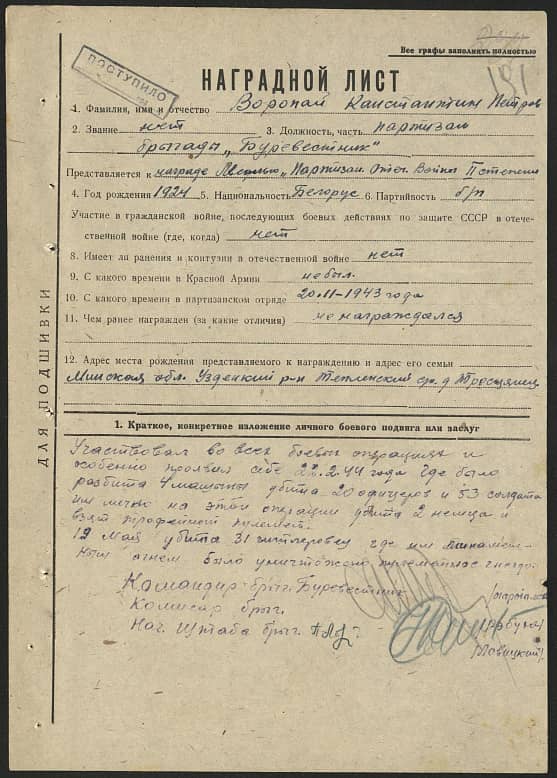 Все графы заполнять полностью
181
ПОСТУПИЛО
НАГРАДНОЙ ЛИСТ
1. Фамилия, имя и отчество Воропай Канстантин Петров
2. Звание нет 3. Должность, часть партизан
бригады „Буревестник"
Представляется к награде Медалью „Партизан. Отеч. Войны II степени
4. Год рождения 1924 5. Национальность Белорус 6. Партийность б/п
Участие в гражданской войне, последующих боевых действиях по защите СССР в отече-
ственной войне (где, когда) нет
8. Имеет ли ранения и контузии в отечественной войне нет
9. С какого времени в Красной Армии не был.
10. С какого времени в партизанском отряде 20-11-1943 года
11. Чем ранее награжден (за какие отличия) не награждался
12. Адрес места рождения представляемого к награждению и адрес его семьи
Минская обл. Узденский р-н Теплинский д.
ДЛЯ ПОДШИВКИ
1. Краткое, конкретное изложение личного боевого подвига или заслуг
Участвовал во всех боевых операциях и
особенно проявил себе 22.2.44 года где было
разбита 4 машины убита 20 офицеров и 53 солдата
им лично на этой операции убита 2 немца и
взят трофейный пулемет.
19 Май убита 31 гитлеровец где им
огнем было уничтожено пулеметное гнездо.
Командир бриг. Буревестник
Комисар бриг.
Нач. Штаба бриг.